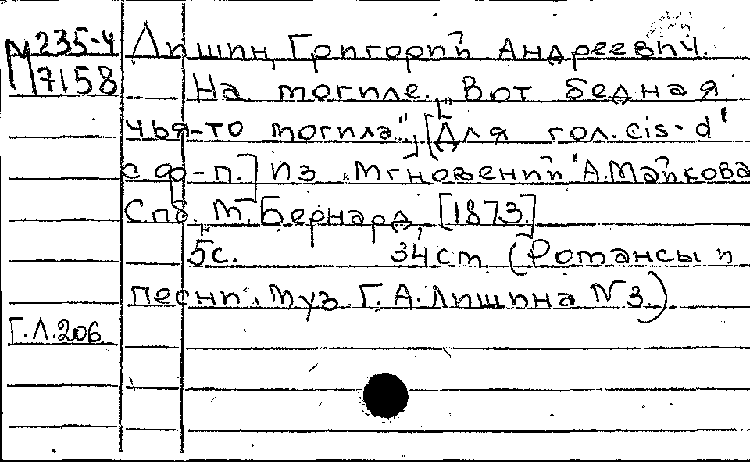 М 235-4 Лишин, Григорий Андреевич.
7158 На могиле. „Вот бедная
чья-то могила". [Для гол. cis-d'
с ф-п.] Из „Мгновений" А. Майкова
Спб. М. Бернард, [1873.]
5с. 34см (Романсы и
песни. Муз Г. А. Лишина № 3.)
Г.Л.206